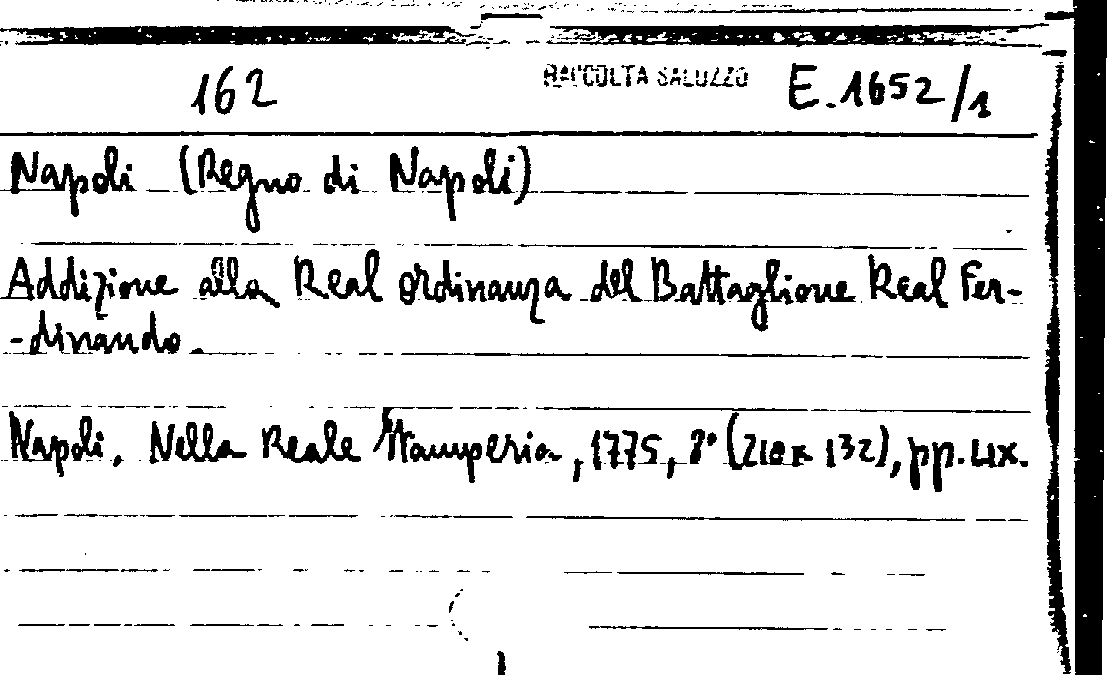 162 RACCOLTA SALUZZO E.1652/1
Napoli (Regno di Napoli)
Addizione alla Real ordinanza del Battaglione Real Fer-
-dinando.
Napoli, Nella Reale Stamperia, 1775, 8° (210x132), pp. LIX.